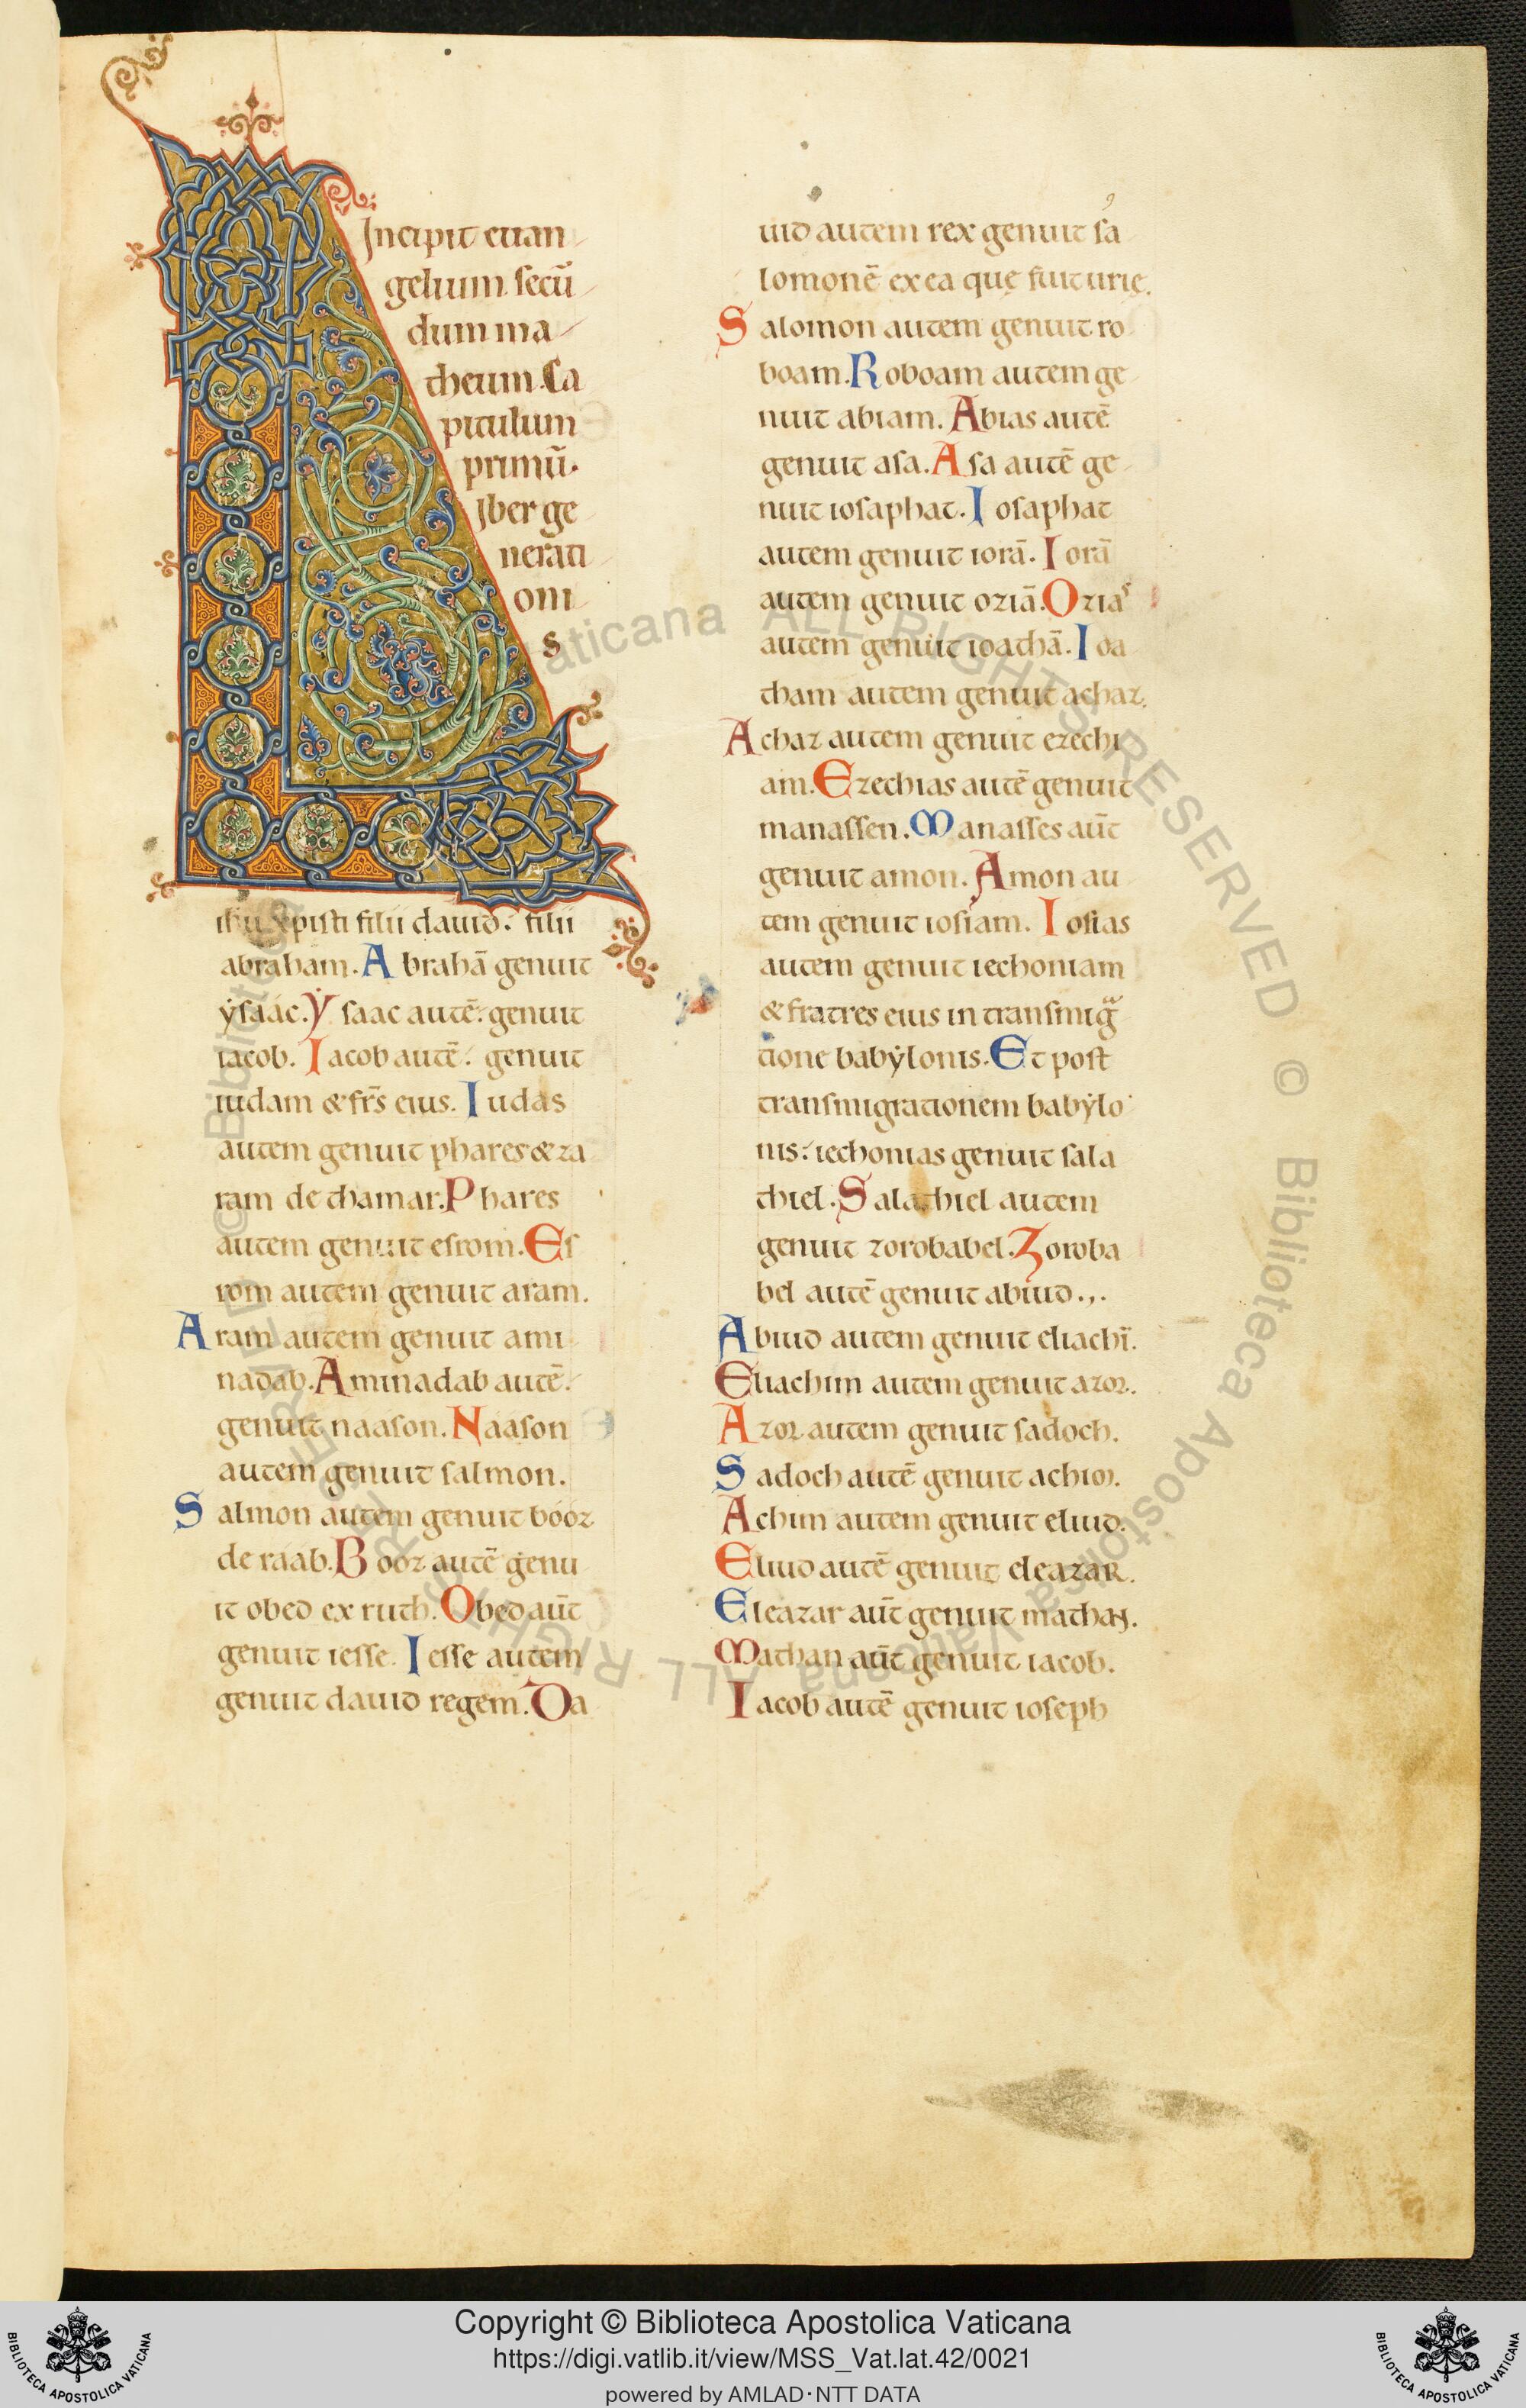 Incipit euan
gelium secū
dum ma
theum. Ca
pitulum
primū.
Iber ge
nerati
oni
s
ihu xpisti filii dauid. filii
abraham. Abrahā genuit
ẏsaac. Ẏsaac autē. genuit
iacob. Iacob autē. genuit
iudam & fr̄s eius. Iudas
autem genuit phares & za
ram de thamar. Phares
autem genuit esrom. Es
rom autem genuit aram.
Aram autem genuit ami
nadab. Aminadab autē.
genuit naason. Naason
autem genuit salmon.
Salmon autem genuit booz
de raab. Booz autē genu
it obed ex ruth. Obed aūt
genuit iesse. Iesse autem
genuit dauid regem. Da
uid autem rex genuit sa
lomonē ex ea quę fuit urię.
Salomon autem genuit ro
boam. Roboam autem ge
nuit abiam. Abias autē
genuit asa. Asa autē ge
nuit iosaphat. Iosaphat
autem genuit iorā. Iorā
autem genuit oziā. Ozias
autem genuit ioathā. Ioa
tham autem genuit achaz.
Achaz autem genuit ezechi
am. Ezechias autē genuit
manassen. Manasses aūt
genuit amon. Amon au
tem genuit iosiam. Iosias
autem genuit iechoniam
& fratres eius in transmigᷓ
tione babẏlonis. Et post
transmigrationem babẏlo
nis. iechonias genuit sala
thiel. Salathiel autem
genuit zorobabel. Zoroba
bel autē genuit abiud.,.
Abiud autem genuit eliachī.
Eliachim autem genuit azor.
Azor autem genuit sadoch.
Sadoch autē genuit achim.
Achim autem genuit eliud.
Eliud autē genuit eleazar.
Eleazar aūt genuit mathan.
Mathan aūt genuit iacob.
Iacob autē genuit ioseph
© Biblioteca Apostolica Vaticana ALL RIGHTS RESERVED
Copyright © Biblioteca Apostolica Vaticana
https://digi.vatlib.it/view/MSS_Vat.lat.42/0021
powered by AMLAD·NTT DATA
BIBLIOTECA APOSTOLICA VATICANA
BIBLIOTECA APOSTOLICA VATICANA